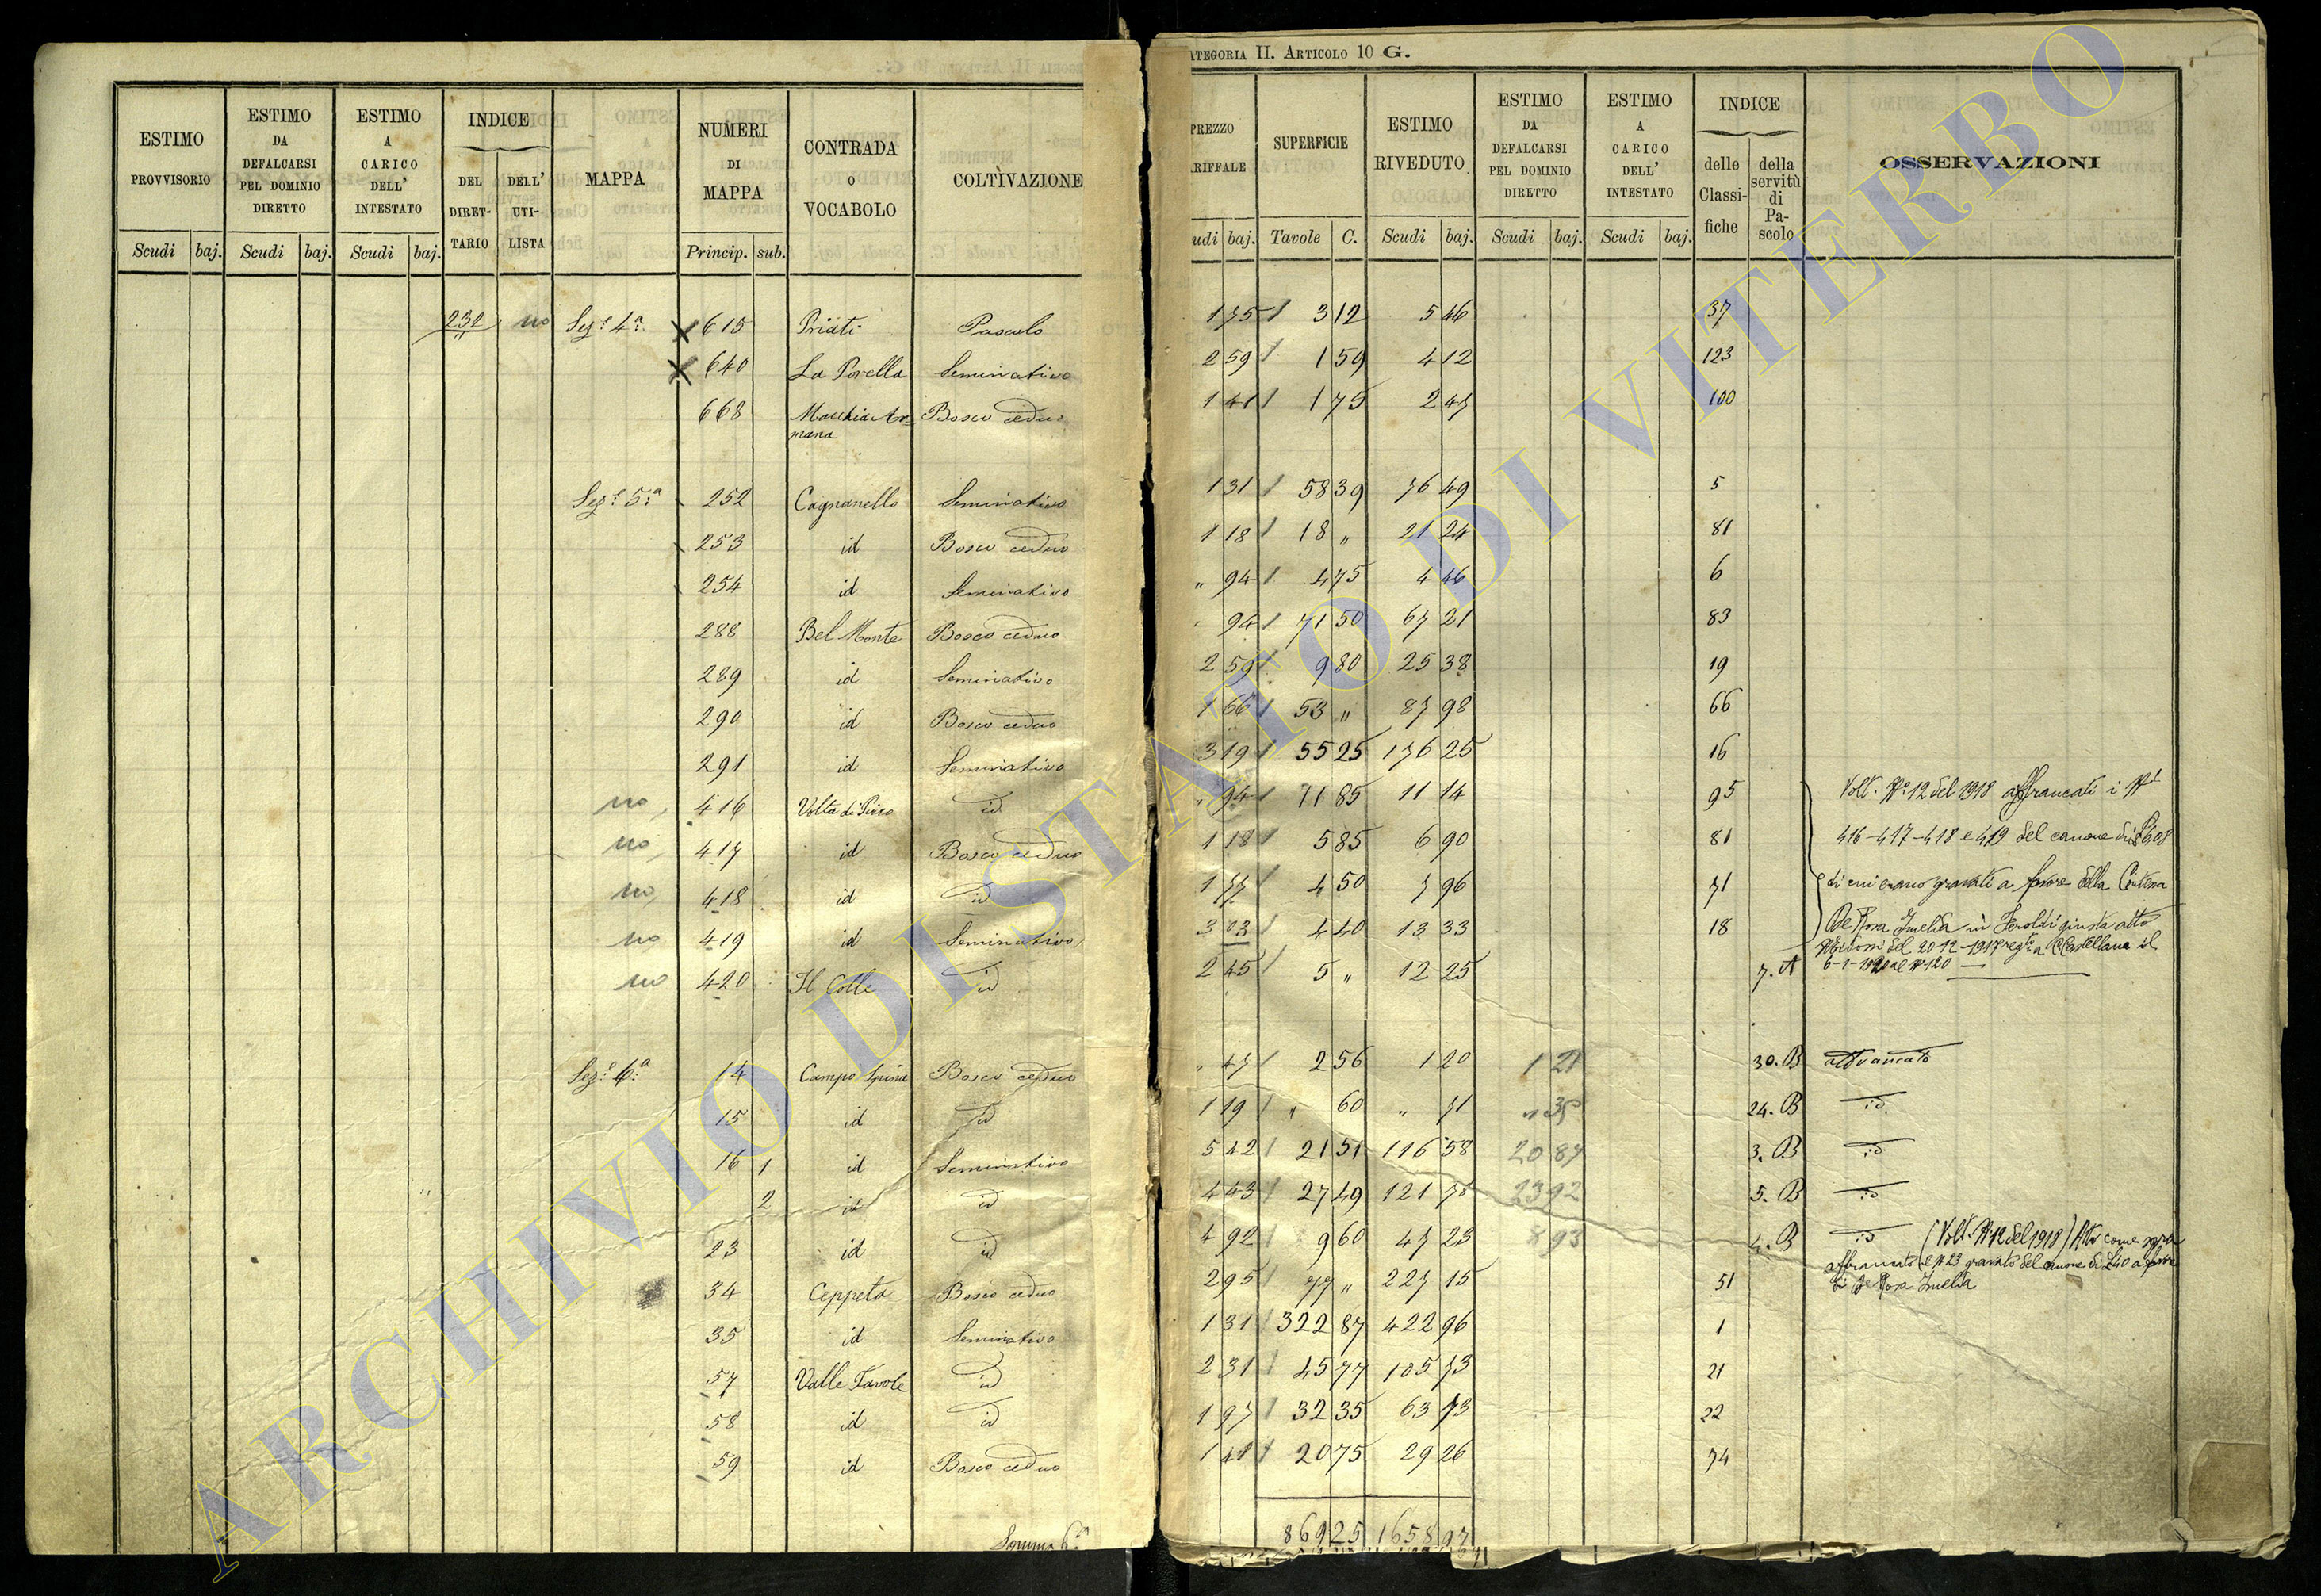 ATEGORIA II. ARTICOLO 10 G.
ESTIMO PROVVISORIO
ESTIMO DA DEFALCARSI PEL DOMINIO DIRETTO
ESTIMO A CARICO DELL' INTESTATO
INDICE
DEL DIRETTARIO
DELL' UTILISTA
MAPPA
NUMERI DI MAPPA
CONTRADA O VOCABOLO
COLTIVAZIONE
PREZZO
RIFFALE
SUPERFICIE
ESTIMO RIVEDUTO
ESTIMO DA DEFALCARSI PEL DOMINIO DIRETTO
ESTIMO A CARICO DELL' INTESTATO
INDICE
delle Classifiche
della servitù di Pascolo
OSSERVAZIONI
Scudi baj. Scudi baj. Scudi baj. Princip. sub.
udi baj. Tavole C. Scudi baj. Scudi baj. Scudi baj.
232 no Sez.e 4.a 615 Priati Pascolo 1 75 3 12 5 46 37
640 Seminativo 2 59 1 59 4 12 123
668 Macchia Bosco ceduo 1 41 1 75 2 47 100
Sez.e 5.a 252 Cagnanello Seminativo 1 31 58 39 76 49 5
253 id Bosco ceduo 1 18 18 " 21 24 81
254 id Seminativo " 94 4 75 4 46 6
288 Bel Monte Bosco ceduo 94 71 50 67 21 83
289 id Seminativo 2 59 9 80 25 38 19
290 id Bosco ceduo 1 66 53 " 87 98 66
291 id Seminativo 3 19 55 25 176 25 16
no 416 Volta di id " 94 11 85 11 14 95
no 417 id Bosco ceduo 1 18 5 85 6 90 81
no 418 id id 1 77 4 50 7 96 71
no 419 id Seminativo 3 03 4 40 13 33 18
no 420 Il Colle id 2 45 5 " 12 25 7. A
Volt. N° 12 del 1918 affrancati i N.i
416-417-418 e 419 del canone di
di cui erano gravati a favore della Contessa
De Rosa Imelda in giusta atto
del 20-12-1917 reg.to a C Castellana il
N° 120
Sez.e 6.a 14 Campo Spina Bosco ceduo " 47 2 56 1 20 1 21 30. B affrancato
15 id id 1 19 " 60 " 71 " 35 24. B id.
16 1 id Seminativo 5 42 21 51 116 58 20 87 3. B id
2 id id 4 43 27 49 121 78 23 92 5. B id
23 id id 4 92 9 60 47 23 8 93 4. B id (Volt. N° 12 del 1918) Atto come sopra
affrancato il N° 23 gravato del canone di £ 40 a favore
di De Rosa Imelda
34 Ceppeta Bosco ceduo 2 95 77 " 227 15 51
35 id Seminativo 1 31 322 87 422 96 1
57 Valle Tavole id 2 31 45 77 105 73 21
58 id id 1 97 32 35 63 73 22
59 id Bosco ceduo 1 41 20 75 29 26 74
Somma 869 25 1658 97
ARCHIVIO DI STATO DI VITERBO